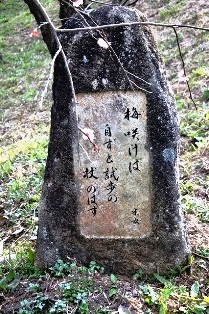 梅咲けば
自ずと試歩の
杖のばす